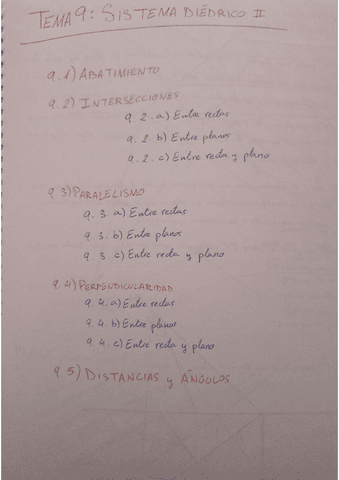 TEMA 9: SISTEMA DIÉDRICO II
9.1) ABATIMIENTO
9.2) INTERSECCIONES
9.2.a) Entre rectas
9.2.b) Entre planos
9.2.c) Entre recta y plano
9.3) PARALELISMO
9.3.a) Entre rectas
9.3.b) Entre planos
9.3.c) Entre recta y plano
9.4) PERPENDICULARIDAD
9.4.a) Entre rectas
9.4.b) Entre planos
9.4.c) Entre recta y plano
9.5) DISTANCIAS y ÁNGULOS